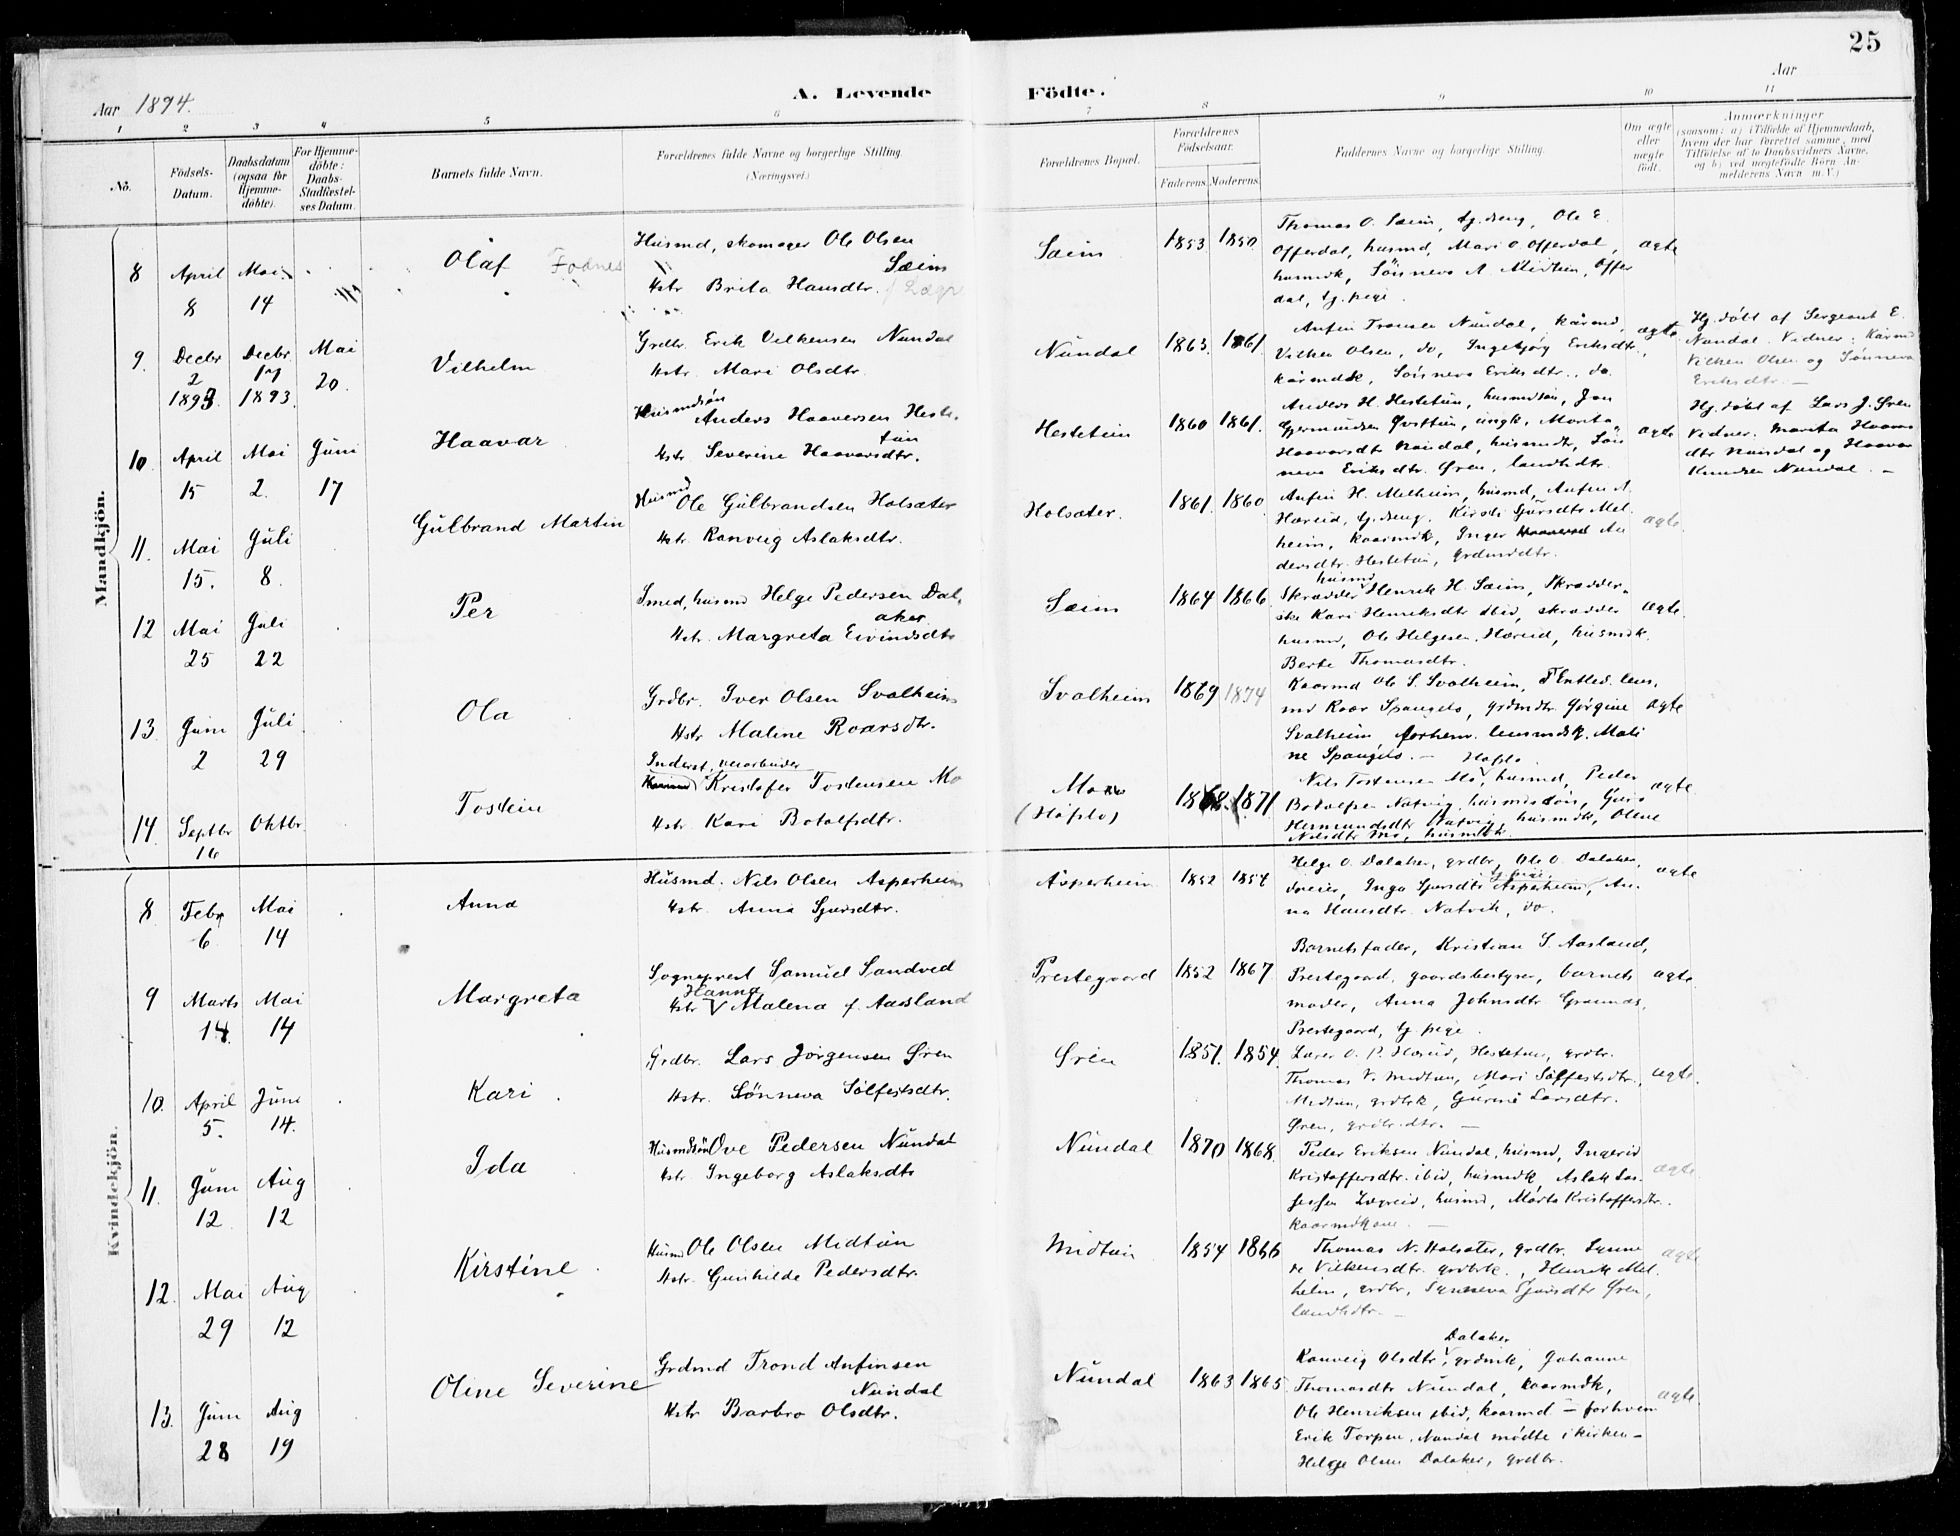 25
Aar 1894.
A. Levende Födte.
Aar
1 2 3 4 5 6 7 8 9 10 11
No.
Födsels-Datum.
Daabsdatum (ogsaa for Hjemmedöbte).
For Hjemmedöbte: Daabs-Stadfestelses Datum.
Barnets fulde Navn.
Forældrenes fulde Navne og borgerlige Stilling. (Næringsvei.)
Forældrenes Bopæl.
Forældrenes Födselsaar.
Faderens. Moderens.
Faddernes Navne og borgerlige Stilling.
Om ægte eller uægte födt.
Anmærkninger (saasom: a) i Tilfælde af Hjemmedaab, hvem der har forrettet samme, med Tilföielse af to Daabsvidners Navne, og b) ved uægtefödte Börn Anmelderens Navn m. V.)
Mandkjön.
8 April 8 Mai 14
Olaf Fodnes
Husmd, skomager Ole Olsen Sæim
Hstr Brita Hansdtr.
Sæim
1853 1850
Thomas O. Sæim, tj.dreng, Ole E.
Offerdal, husmd, Mari O. Offerdal,
husmdk, Sönneva A. Midtun, Offer
dal, tj. pige.
ægte
9. Decbr 2 1893 Decbr 17 1893. Mai 20.
Vilhelm
Grdbr. Erik Vilkensen Nundal
Hstr. Mari Olsdtr.
Nundal
1863. 1861.
Anfin Tronsen Nundal, kårmd,
Vilken Olsen, do, Ingebjörg Eriksdtr.,
kårmdsk, Sönneva Eriksdtr., do.
ægte
Hj. døbt af Sergeant E.
Nundal. Vidner: Kårmd
Vilken Olsen og Sönneva
Eriksdtr. —
10. April 15 Mai 2. Juni 17
Haavar
Husmdsön Anders Haaversen Hestetun
Hstr. Severine Haavarsdtr.
Hestetun
1860 1861.
Anders H. Hestetun, husmdsön, Jon
Gjermundsen Qvittun, ungk, Marita
Haavarsdtr Nundal, husmdtr, Sön
neva Eriksdtr. Øren, landhdtr.
ægte
Hj. døbt af Lars J. Øren
Vidner: Marita Haavars
dtr Nundal og Haavar
Knudsen Nundal. —
11. Mai 15. Juli 8.
Gulbrand Martin
Husmd Ole Gulbrandsen Holsæter
Hstr. Ranveig Aslaksdtr.
Holsæter.
1861. 1860
Anfin H. Melheim, husmd, Anfin A.
Hæreid, tj. dreng, Kirsti Sjursdtr Mel
heim, kaarmdk, Inger An
dersdtr. Hestetun, grdmdtr.
ægte.
12 Mai 25 Juli 22
Per
Smed, husmd Helge Pedersen Dalaker
Hstr. Margreta Eivindsdtr
Sæim
1864 1866
Skrædder husmd Henrik H. Sæim, Skrædder-
ske Kari Henriksdtr ibid, skrædder
husmd, Ole Helgesen Hæreid, husmdk.
Berte Thomasdtr.
ægte.
13. Juni 2 Juli 29
Ola
Grdbr. Iver Olsen Svalheim
Hstr Maline Roarsdtr.
Svalheim
1869 1874
Kaarmd Ole S. Svalheim, Entled. lens
md Roar Spangelo, grdmdtr. Jörgine
Svalheim forhenv. lensmdsk. Mali
ne Spangelo. —
ægte
14. Septbr 16 Oktbr.
Tostein
Inderst, veiarbeider Kristofer Tostensen Mo
Hstr. Kari Botolfsdtr.
Mo (Hæfslo)
1868. 1871.
Nils Tostensen Mo, Hafslo husmd, Peder
Botolfsen Natvig, husmdssön, Guro
Hermundsdtr Natvig, husmdk, Oline
Nilsdtr Mo, husmdtr.
ægte.
Kvindekjön.
8. Febr 6 Mai 14
Anna
Husmd. Nils Olsen Asperheim
Hstr. Anna Sjursdtr.
Asperheim
1852 1854
Helge O. Dalaker, grdbr, Ole O. Dalaker,
dreier, Inga Sjursdtr Asperheim, tj.pige, An-
na Hansdtr. Natvik, do.
ægte
9 Marts 14. Mai 14
Margreta
Sogneprest Samuel Sandved
Hstr Hanna Malena f. Aasland
Prestegaard
1852 1867
Barnets fader, Kristian S. Aasland,
Prestegaard, gaardsbestyrer, barnets
moder, Anna Johnsdtr Grannas,
Prestegaard, tj. pige.
ægte
10. April 5. Juni 14.
Kari
Grdbr. Lars Jörgensen Øren
Hstr. Sønneva Solfestsdtr.
Øren
1851. 1854.
Lærer O. P. Hæreid, Hestetun, grdbr.
Thomas V. Midtun, Mari Solfestsdtr.,
Midtun, grdbrk, Gurine Larsdtr.
Øren, grdbr.dtr. —
ægte.
11. Juni 12. Aug 12
Ida
Husmdsön Ove Pedersen Nundal
Hstr. Ingeborg Aslaksdtr
Nundal
1870 1868.
Peder Eriksen Nundal, husmd, Ingerid
Kristoffersdtr. ibid, husmdk, Aslak Las-
sesen Lægreid, husmd, Marta Kristoffersdtr.
kaarmdkone. —
ægte
12. Mai 29 Aug 12
Kirstine
Husmd Ole Olsen Midtun
Hstr. Gunhilde Pedersdtr.
Midtun
1854 1866
Thomas N. Holsæter, grdbr. Synne
ve Vilkensdtr. grdbrk., Henrik Mel
heim, grdbr, Synneva Sjursdtr Øren,
landhdtr. —
ægte
13. Juni 28 Aug 19
Oline Severine
Grdmd Trond Anfinsen Nundal
Hstr Barbro Olsdtr.
Nundal
1863 1865
Ranveig Olsdtr Dalaker, grdmk, Johanne
Thomasdtr Nundal, kaarmdk,
Ole Henriksen ibid, kaarmd — forhvem
Erik Torpsen, Nundal mødte i kirken —
Helge Olsen Dalaker, grdbr.
ægte.